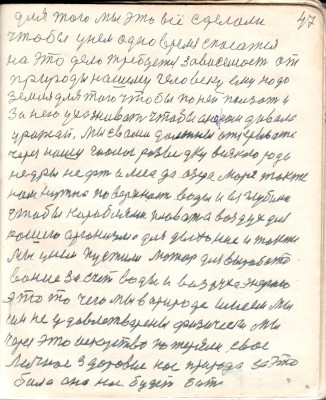 для того мы это всё сделали 47
чтобы у нем одно время спасатся
на это дело требуется зависемость от
природы нашему человеку ему надо
земля для того чтобы по ней ползат и
За нею ухаживать чтобы она давала
урожай. Мы с вами должны открывать
через нашу
недры нефт и леса да озера моря также
нам нужна поверхност воды и в глубине
чтобы кораблями плават а воздух для
нашего организма для дыхание и также
Мы у нем пустим мотор для выработ
вание за счёт воды и воздуха энергию
это то чего мы в природе имеем Мы
им не удовлетворены физически мы
через это искуство потеряли свое
Личное здоровие нас природа за это
била она нас будет бит